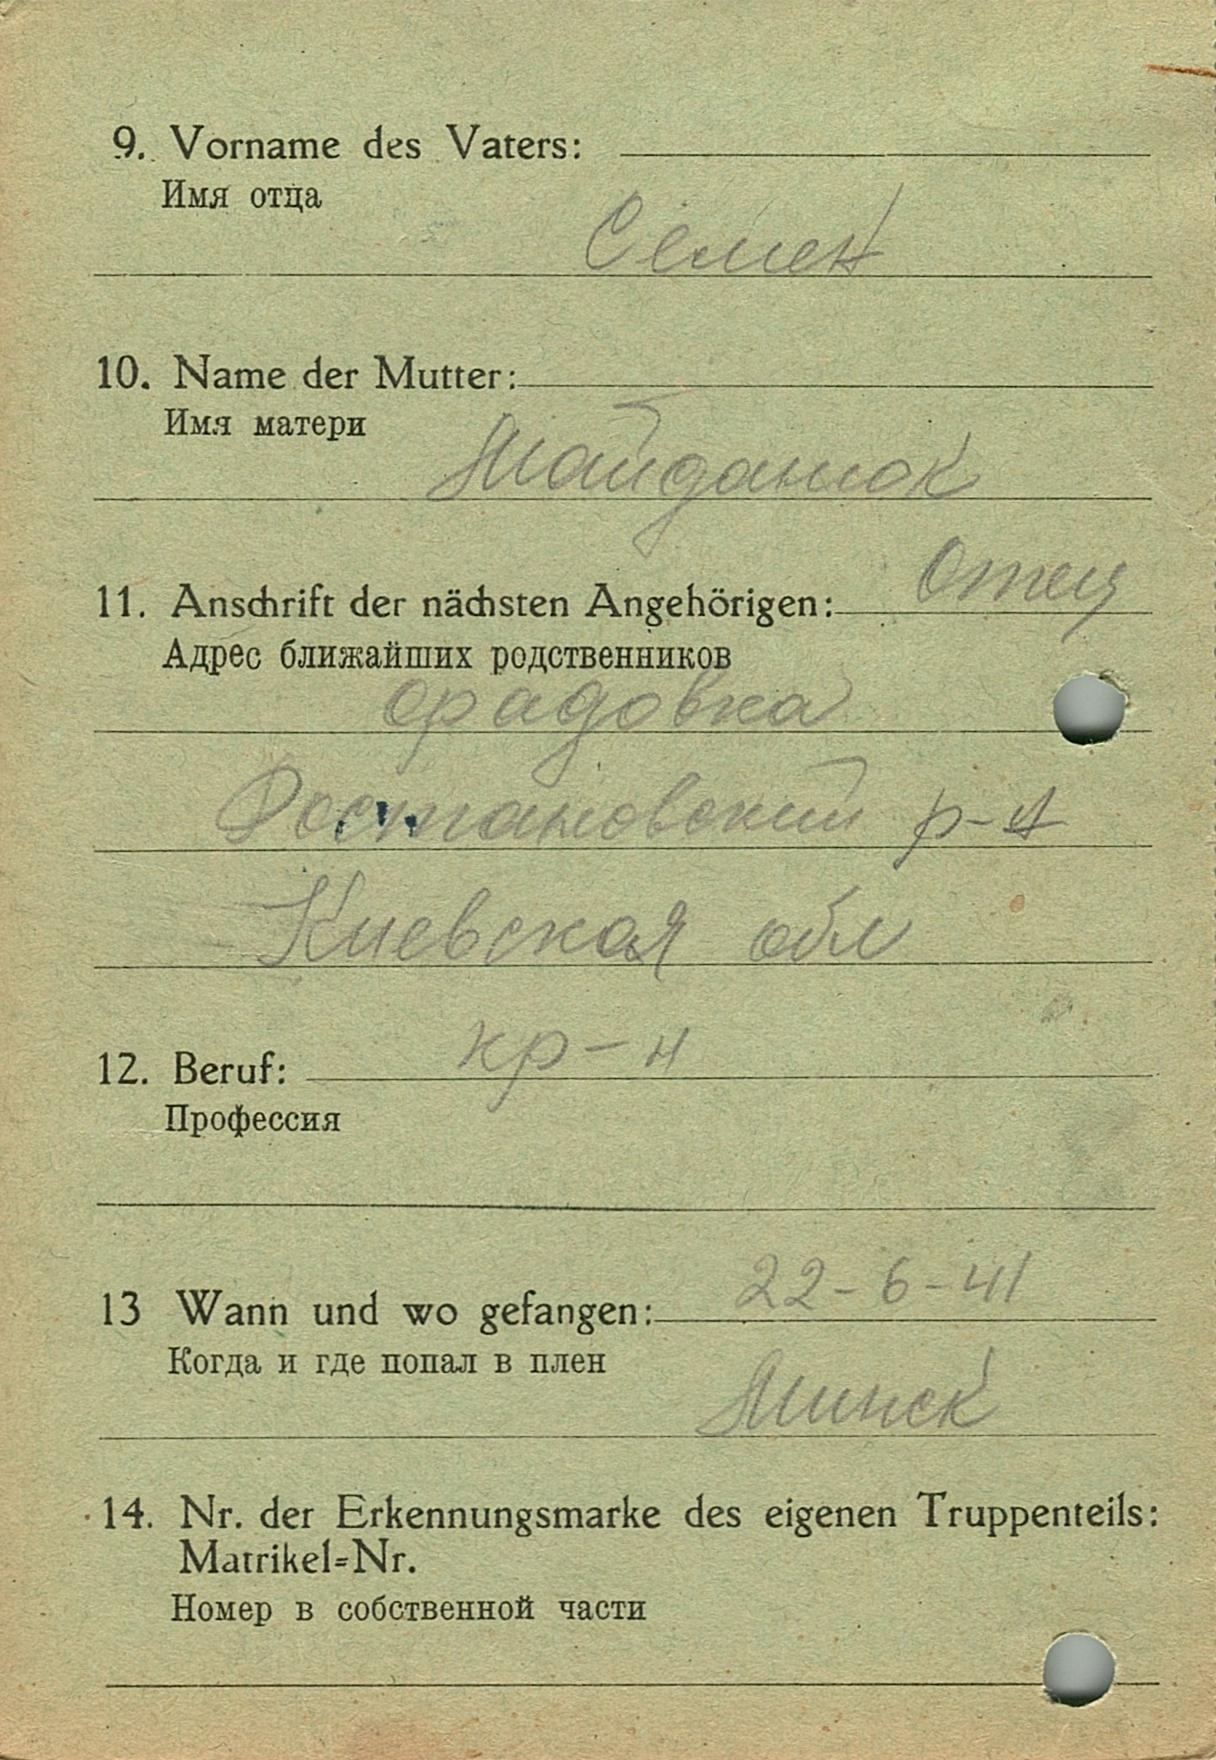 9. Vorname des Vaters:
Имя отца
Семен
10. Name der Mutter:
Имя матери
Майданюк
Отец
11. Anschrift der nächsten Angehörigen:
Адрес ближайших родственников
орадовка
р-н
Киевская обл
12. Beruf: кр-н
Профессия
13 Wann und wo gefangen: 22-6-41
Когда и где попал в плен
Минск
14. Nr. der Erkennungsmarke des eigenen Truppenteils:
Matrikel=Nr.
Номер в собственной части